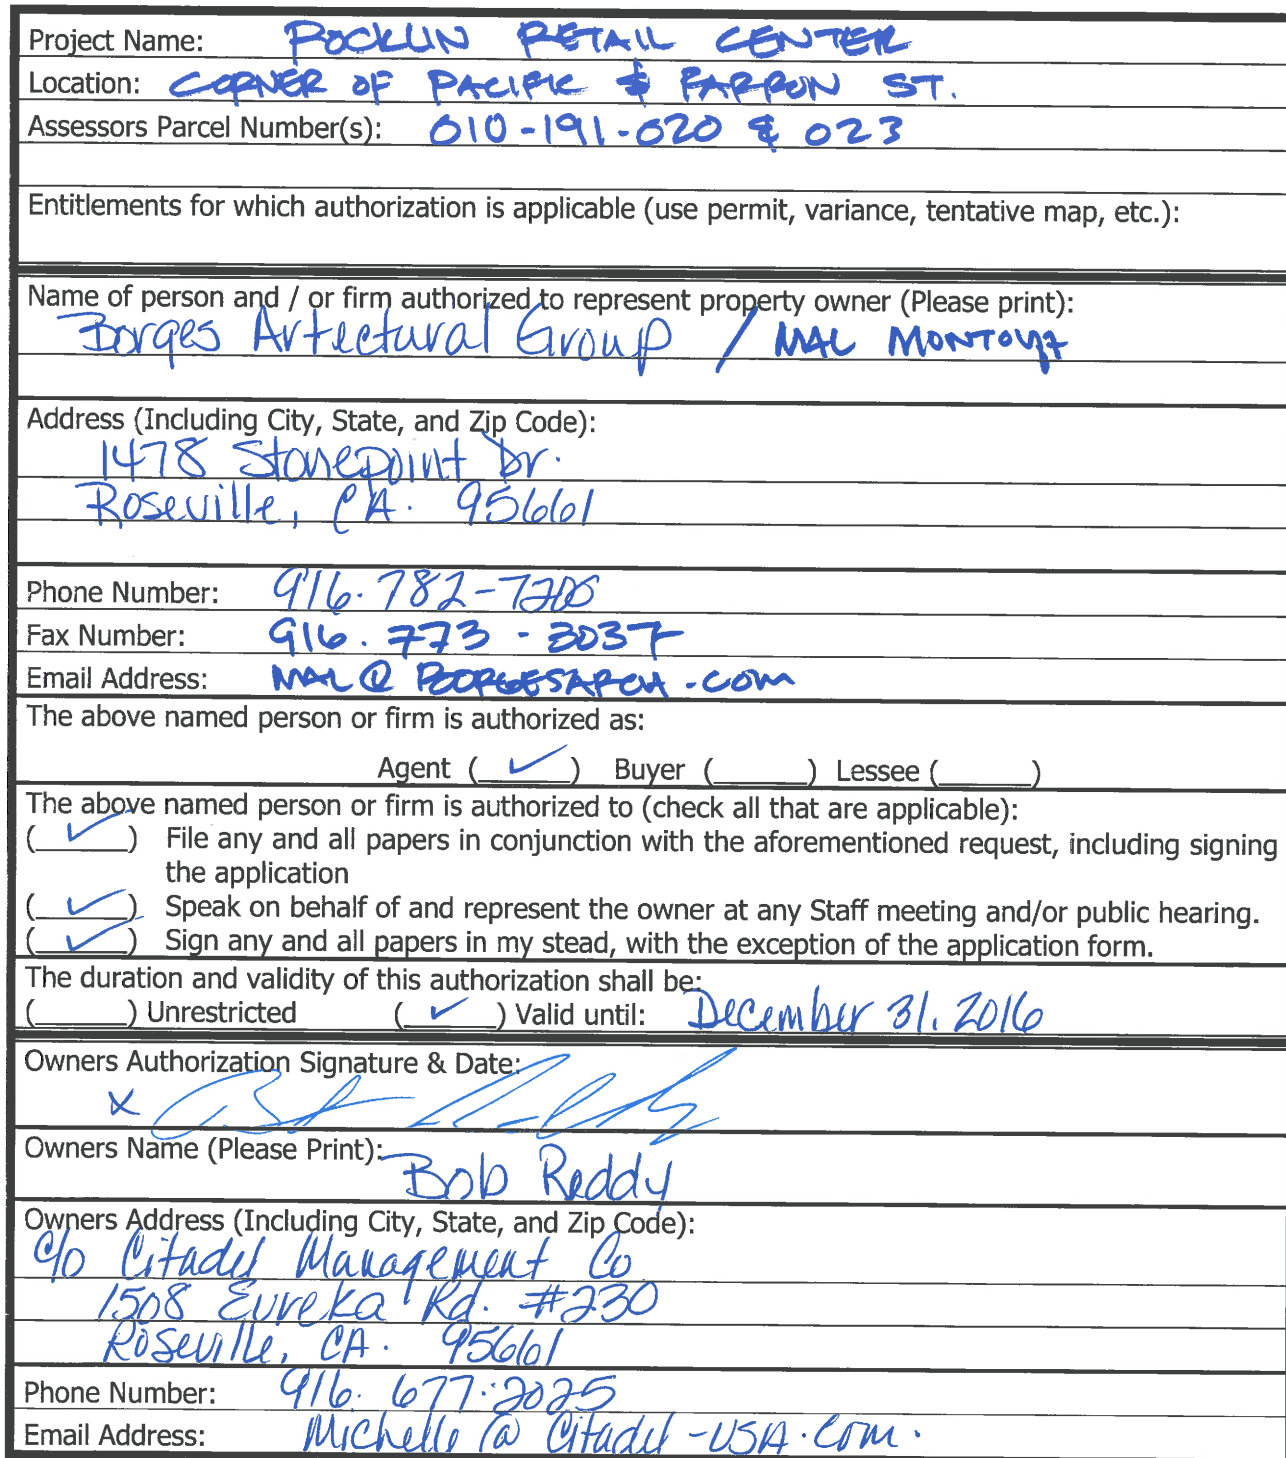 Project Name: ROCKLIN RETAIL CENTER
Location: CORNER OF PACIFIC & FARRON ST.
Assessors Parcel Number(s): 010-191-020 & 023
Entitlements for which authorization is applicable (use permit, variance, tentative map, etc.):
Name of person and / or firm authorized to represent property owner (Please print):
Borges Artectural Group / MAL MONTOYA
Address (Including City, State, and Zip Code):
1478 Stonepoint Dr.
Roseville, CA. 95661
Phone Number: 916.782-7200
Fax Number: 916.773-3037
Email Address: MAL@BORGESARCH.COM
The above named person or firm is authorized as:
Agent (✓) Buyer (____) Lessee (____)
The above named person or firm is authorized to (check all that are applicable):
(✓) File any and all papers in conjunction with the aforementioned request, including signing
the application
(✓) Speak on behalf of and represent the owner at any Staff meeting and/or public hearing.
(✓) Sign any and all papers in my stead, with the exception of the application form.
The duration and validity of this authorization shall be:
(____) Unrestricted (✓) Valid until: December 31, 2016
Owners Authorization Signature & Date:
x
Owners Name (Please Print): Bob Reddy
Owners Address (Including City, State, and Zip Code):
c/o Citadel Management Co
1508 Eureka Rd. #230
Roseville, CA. 95661
Phone Number: 916.677.2025
Email Address: Michelle@Citadel-USA.com.